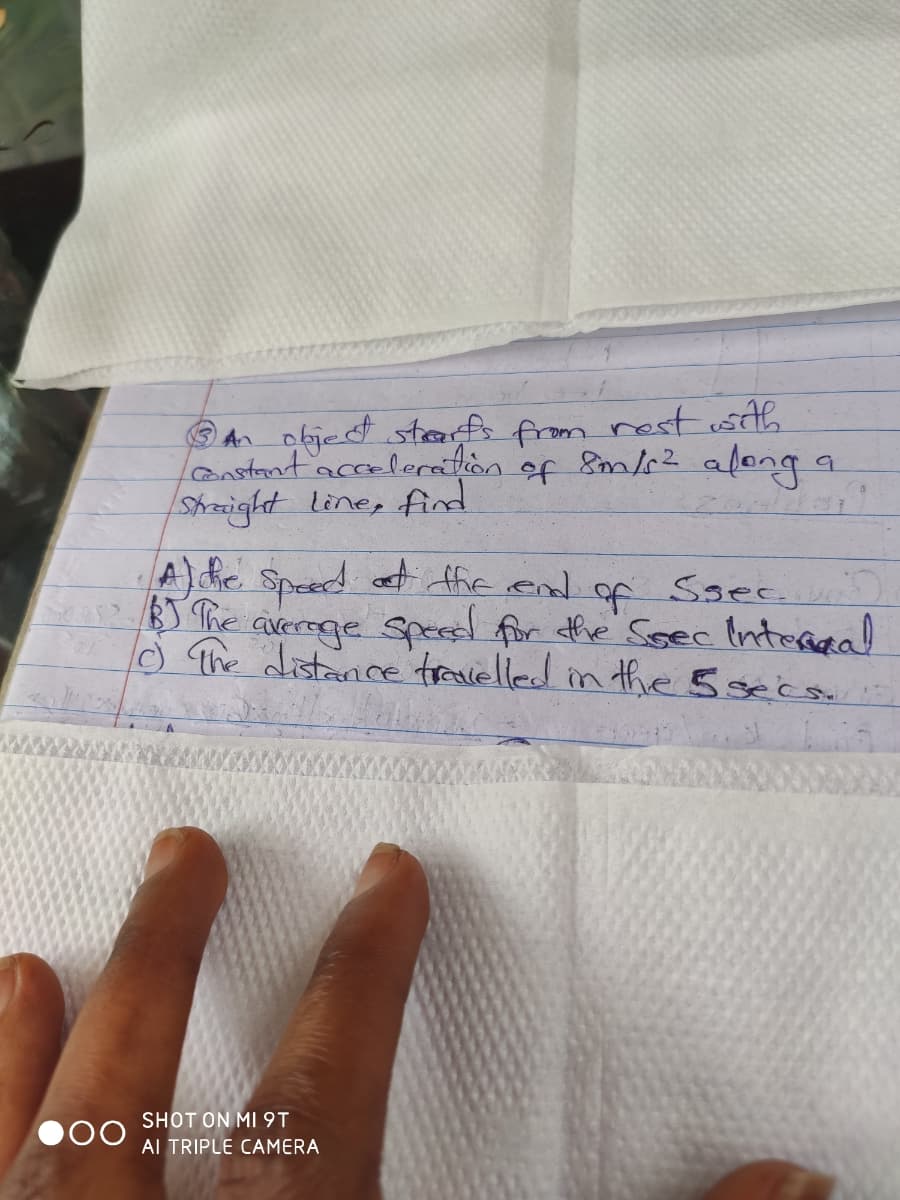 ③ An object starts from rest with
constant acceleration of 8m/s² along a
straight line, find
A) the speed at the end of 5sec
B) The average speed for the 5sec Interval
c) The distance travelled in the 5 secs.
SHOT ON MI 9T
AI TRIPLE CAMERA